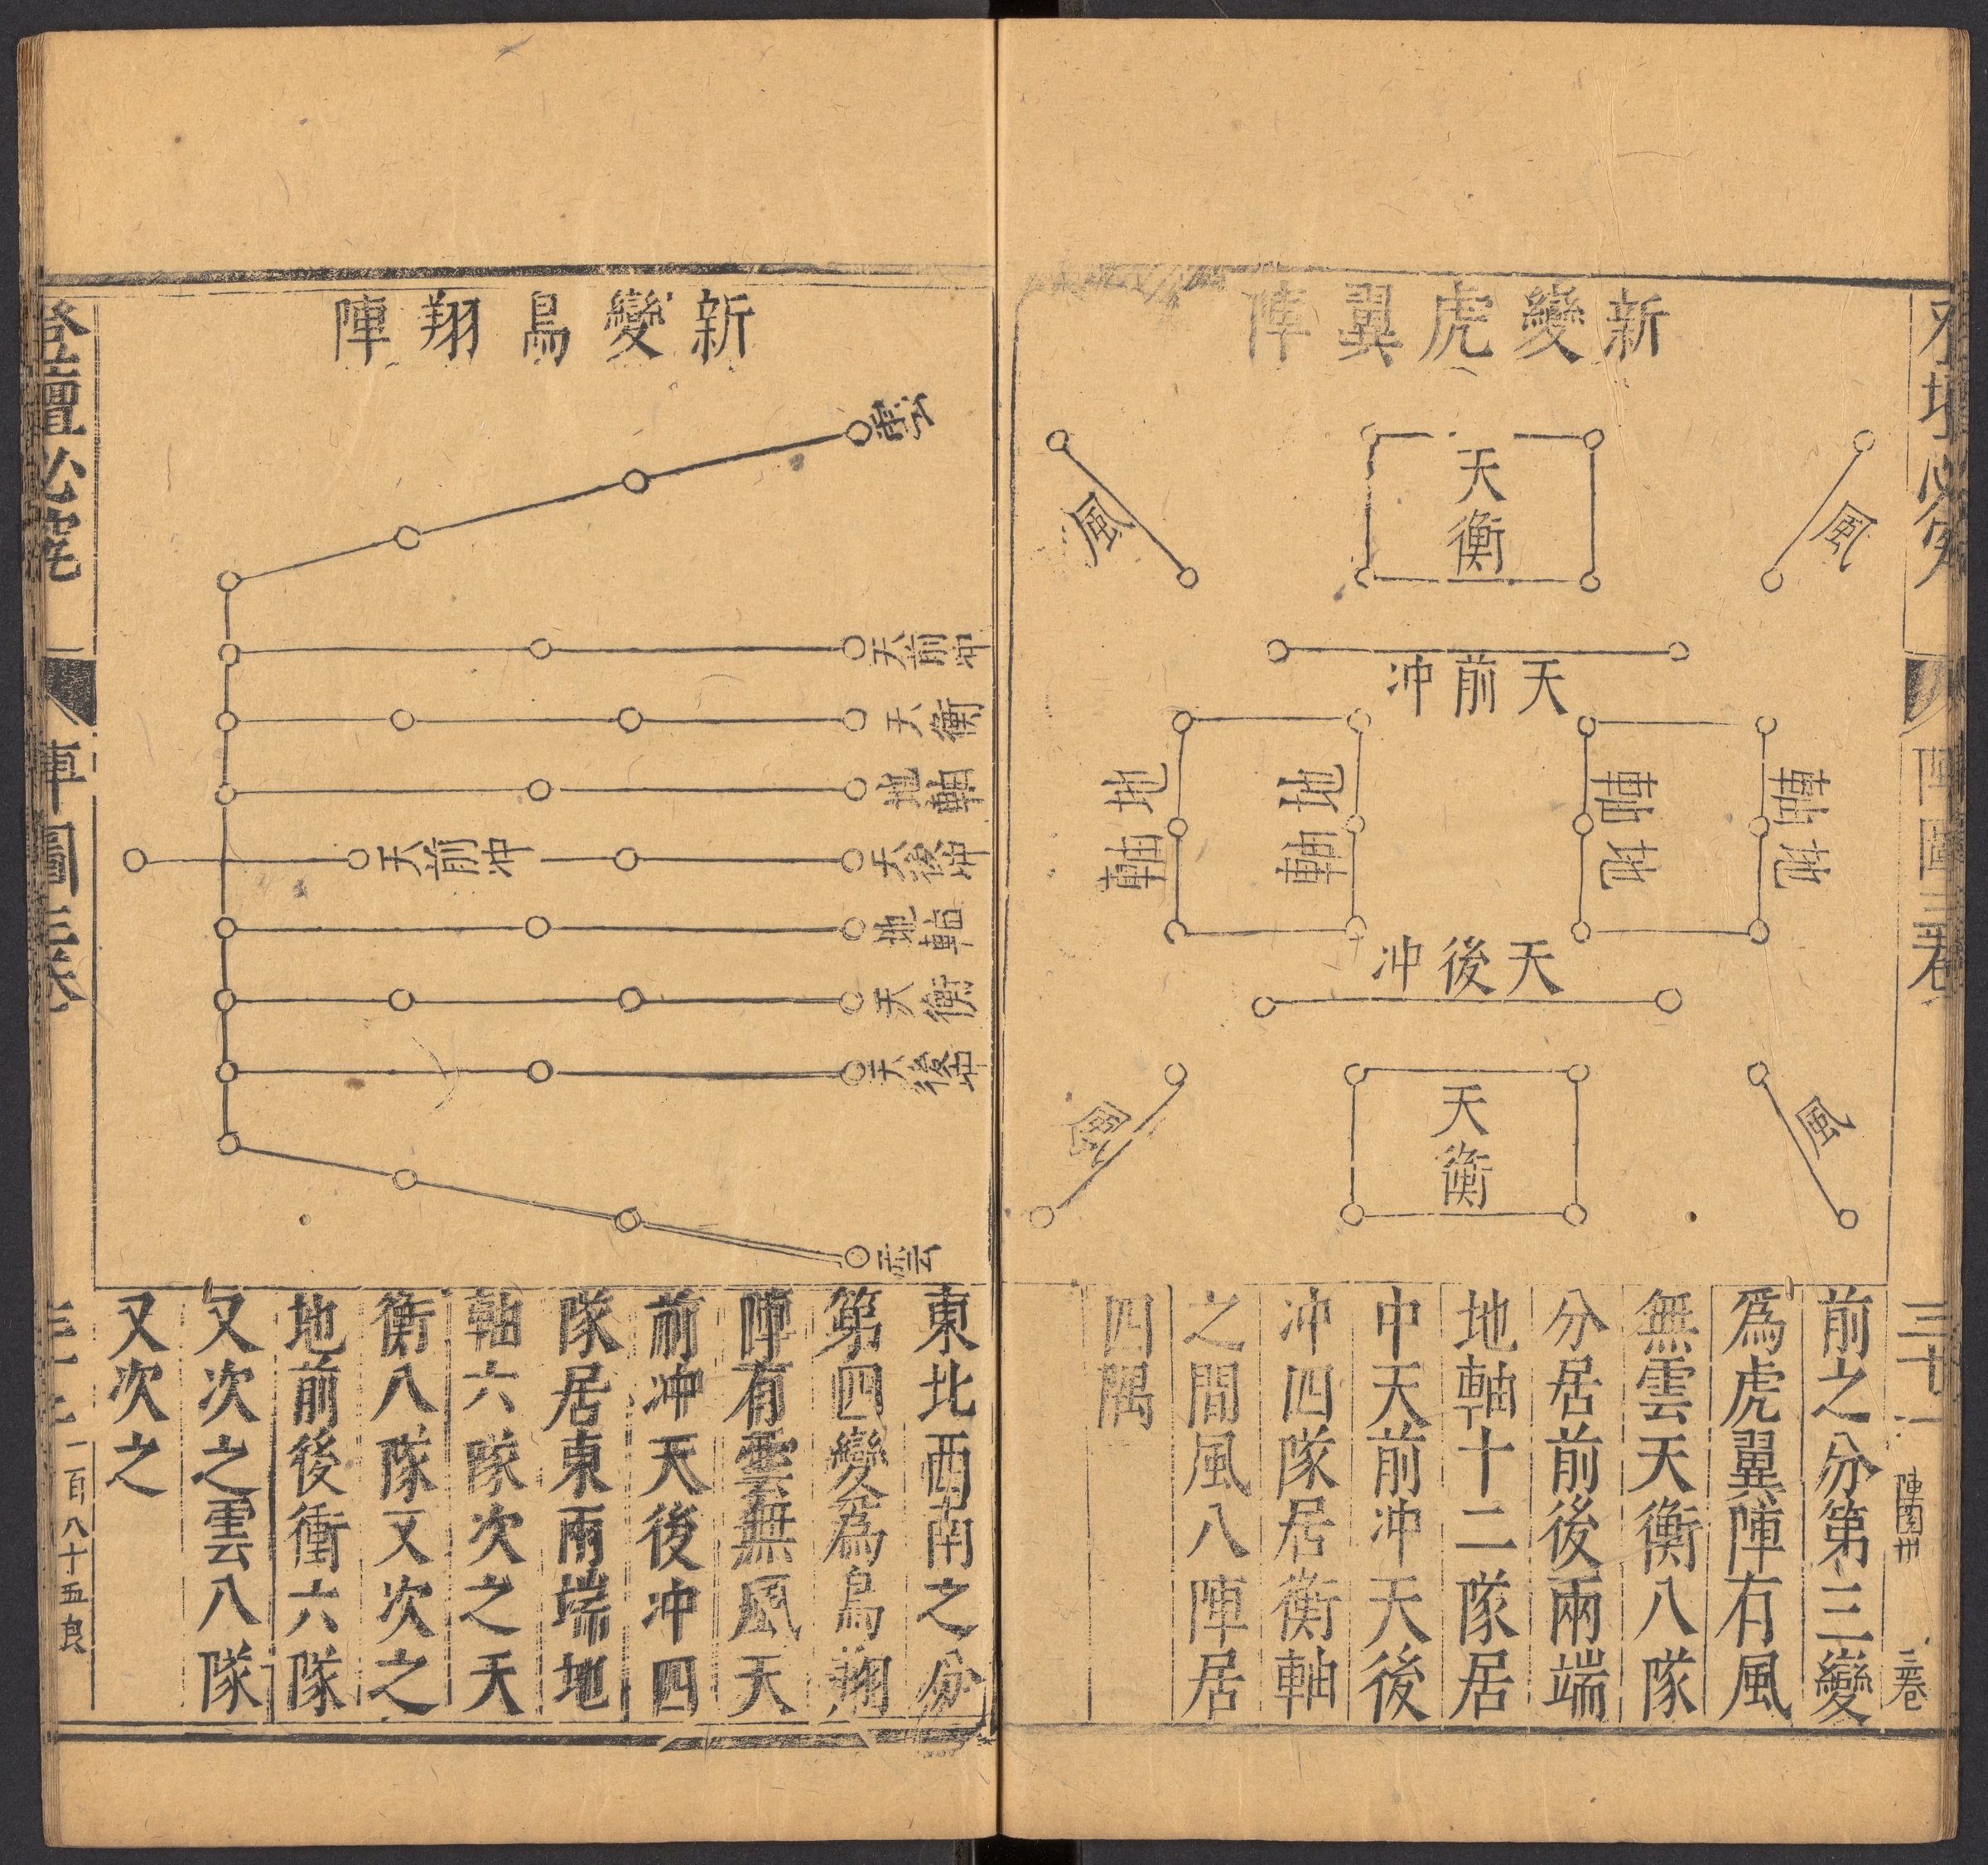 新變虎翼陣
風
天衡
風
天前冲
地軸
地軸
地軸
地軸
天後冲
風
天衡
風
前之分第三變
爲虎翼陣有風
無雲天衡八隊
分居前後兩端
地軸十二隊居
中天前冲天後
冲四隊居衡軸
之間風八陣居
四隅
陣圖卅
三卷
新變鳥翔陣
雲
天前冲
天衡
地軸
天後冲
天前冲
地軸
天衡
天後冲
雲
東北西南之分
第四變爲鳥翔
陣有雲無風天
前冲天後冲四
隊居東兩端地
軸六隊次之天
衡八隊又次之
地前後衝六隊
又次之雲八隊
又次之
登壇必究
陣圖三卷
一百八十五良